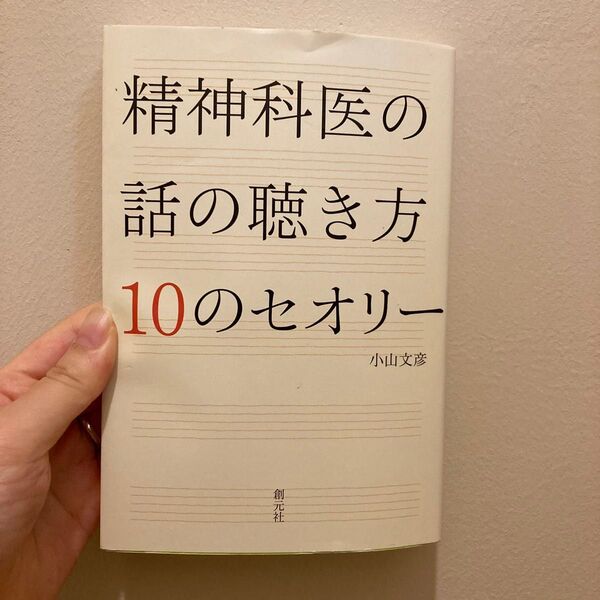 精神科医の
話の聴き方
10のセオリー
小山文彦
創元社